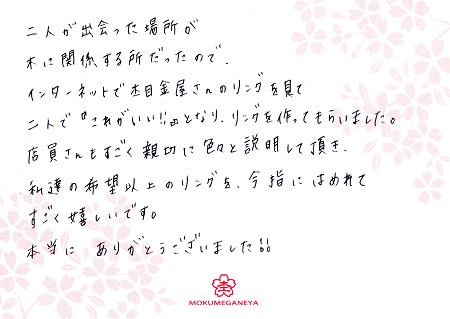 二人が出会った場所が
木に関係する所だったので、
インターネットで杢目金屋さんのリングを見て
二人で『これがいい!!』となり、リングを作ってもらいました。
店員さんもすごく親切に色々と説明して頂き、
私達の希望以上のリングを、今指にはめれて
すごく嬉しいです。
本当に ありがとうございました!!
MOKUMEGANEYA